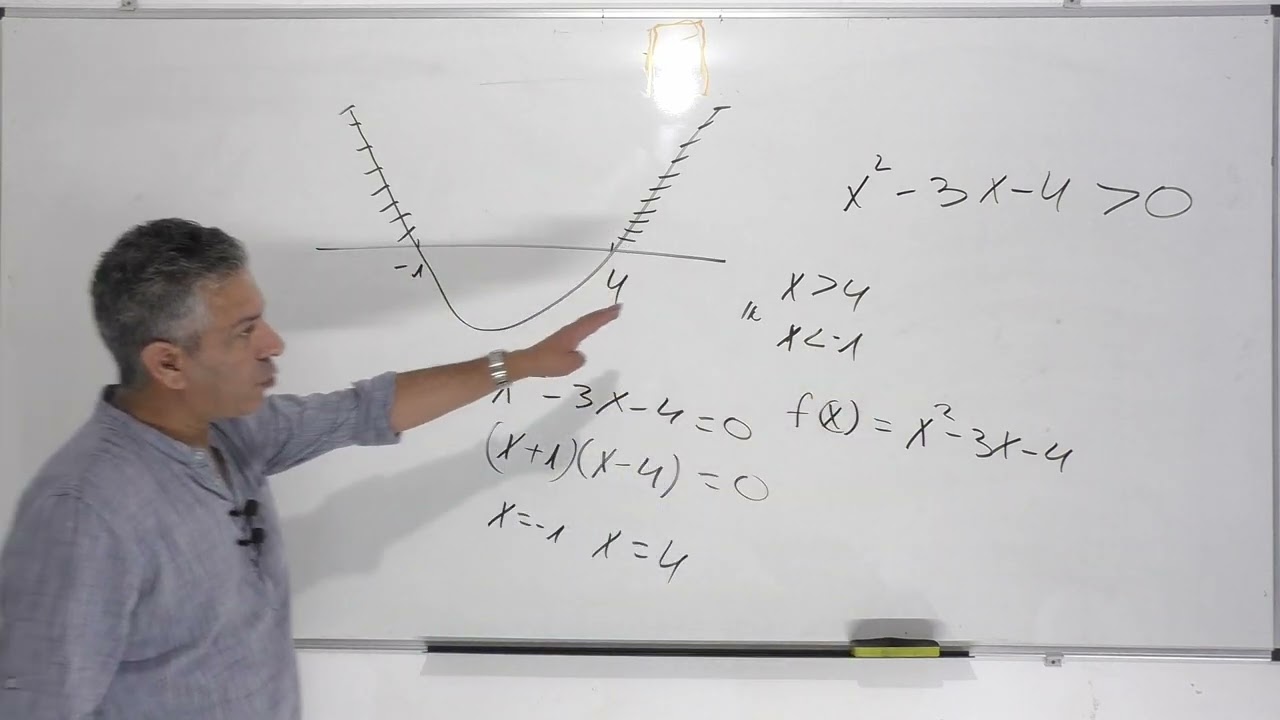 x² - 3x - 4 > 0
-1
4
x > 4
x < -1
- 3x - 4 = 0
f(x) = x² - 3x - 4
(x+1)(x-4) = 0
x = -1 x = 4